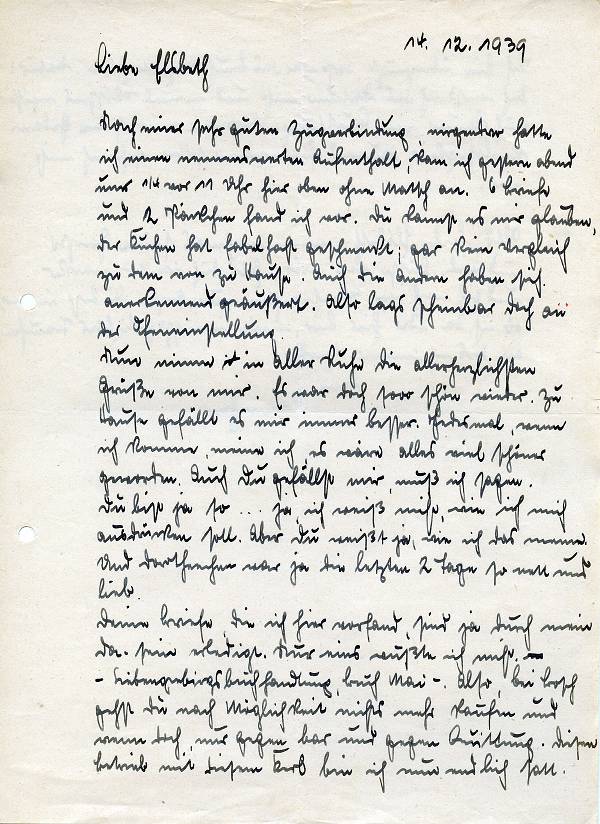 14. 12. 1939
Liebe Elsbeth
Nach einer sehr guten Zugverbindung, nirgendwo hatte
ich einen nennenswerten Aufenthalt, kam ich gestern abend
um 1/4 vor 11 Uhr hier oben ohne Matsch an. 6 Briefe
und 2 Päckchen fand ich vor. Du kannst es mir glauben,
der Kuchen hat fabelhaft geschmeckt; gar kein Vergleich
zu dem von zu Hause. Auch die andern haben sich
anerkennend geäußert. Also lags scheinbar doch an
der Ofeneinstellung.
Nun nimm in aller Ruhe die allerherzlichsten
Grüße von mir. Es war doch sooo schön wieder. Zu
Hause gefällt es mir immer besser. Jedesmal, wenn
ich komme, meine ich, es wäre alles viel schöner
geworden. Auch Du gefällst mir, muß ich sagen.
Du bist ja so ... ja, ich weiß nicht, wie ich mich
ausdrücken soll. Aber Du weißt ja, wie ich das meine.
Und Dortheechen war ja die letzten 2 Tage so nett und
lieb.
Deine Briefe, die ich hier vorfand, sind ja durch mein
Da-sein erledigt. Nur eins wußte ich nicht. —
- Siebengebirgsbuchhandlung, Buch Mai -. Also, bei
gehst Du nach Möglichkeit nichts mehr kaufen und
wenn doch, nur gegen bar und gegen Quittung. Diesen
Betrieb mit diesem Kerl bin ich nun endlich satt.